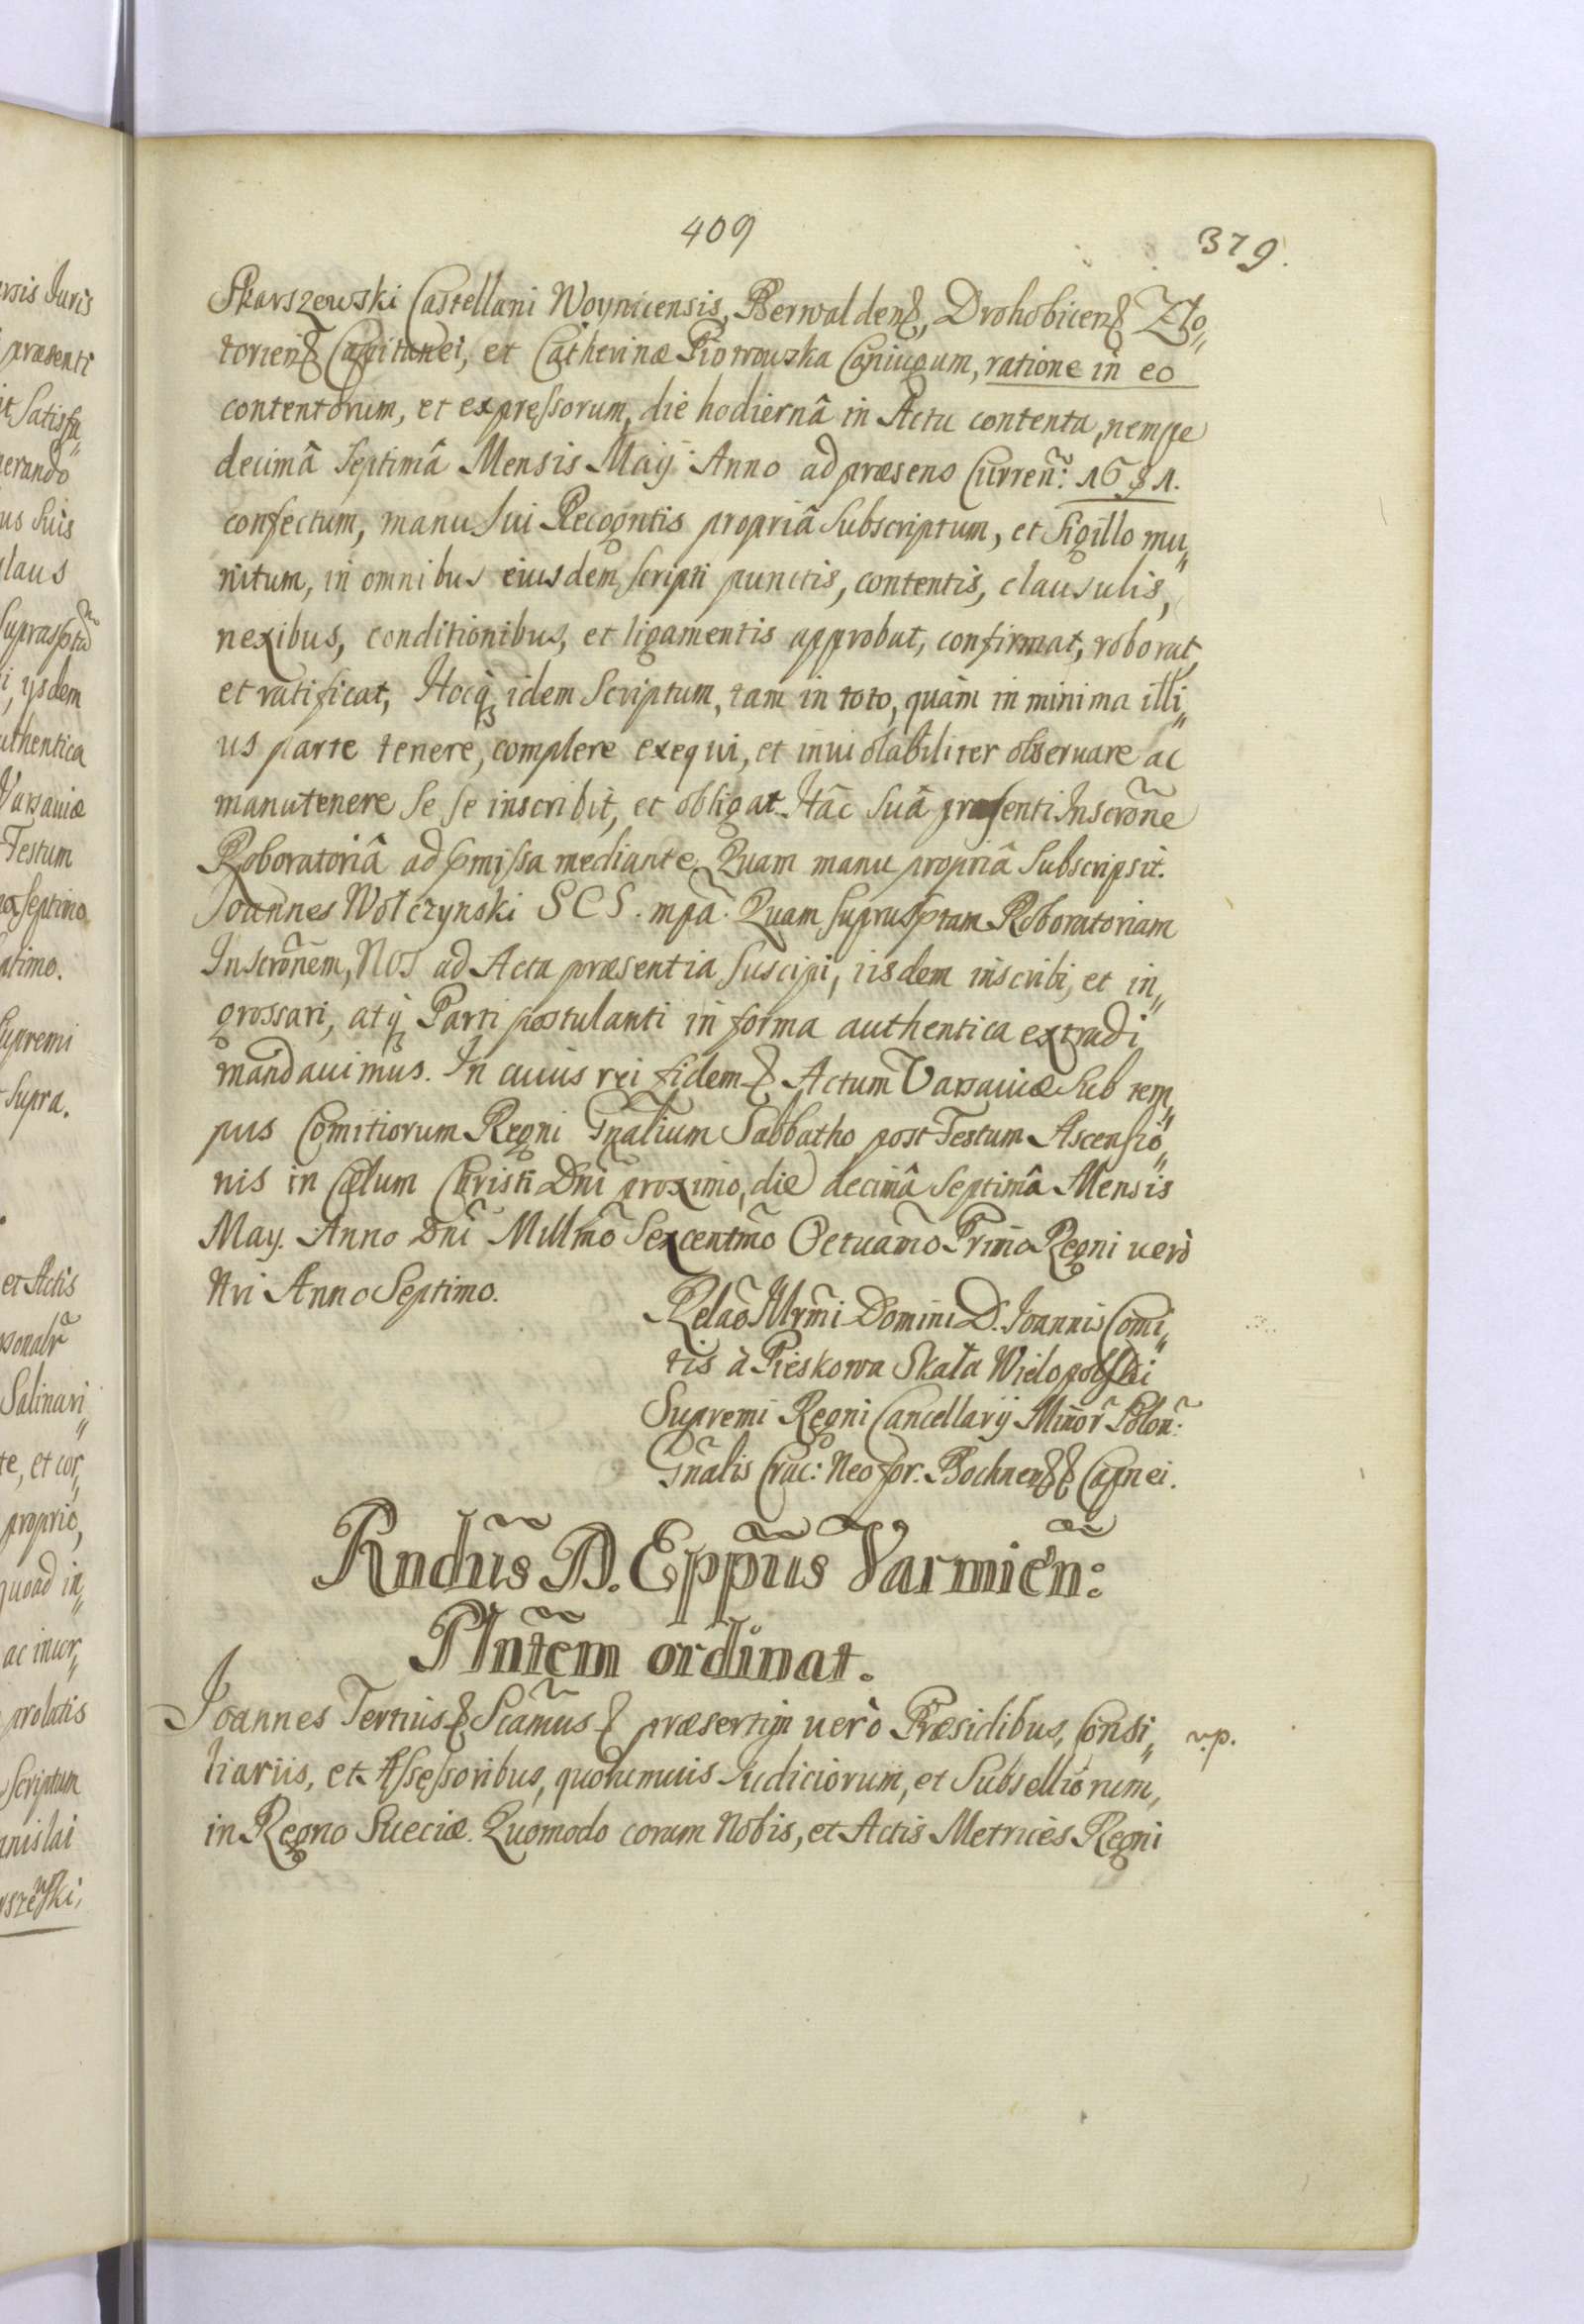 409
379.
Skarszewski Castellani Woynicensis, Berwaldens, Drohobicens Zło„
toriens Capitanei, et Catherinæ Piotrowska Coniugum, ratione in eo
contentorum, et expressorum, die hodiernâ in Actu contenta, nempe
decimâ Septimâ Mensis Maij Anno ad præsens Curreñ: 1681.
confectum, manu sui Recogntis propriâ Subscriptum, et Sigillo mu„
nitum, in omnibus eiusdem scripti punctis, contentis, clausulis,
nexibus, conditionibus, et ligamentis approbat, confirmat, roborat,
et ratificat, Hocq idem Scriptum, tam in toto, quàm in minima illi„
us parte tenere, complere exequi, et inuiolabiliter obseruare ac
manutenere Se se inscribit, et obligat. Hâc Suâ præsenti Inscrõne
Roboratoriâ ad pmissa mediante. Quam manu propriâ Subscripsit.
Joannes Wołczynski SCS. mpã. Quam suprasptam Roboratoriam
Inscrõnem, Nos ad Acta præsentia suscipi, iisdem inscribi, et in„
grossari, atq Parti postulanti in forma authentica extradi
mandauimus. In cuius rei fidem & Actum Varsauiæ Sub tem„
pus Comitiorum Regni Gnãlium Sabbatho post Festum Ascensio„
nis in Cælum Christi Dnĩ proximo, die decimâ Septimâ Mensis
May. Anno Dnĩ Millmõ Sexcentmõ Octuamõ Primo Regni uerò
Nri Anno Septimo.
Relaõ Illrmĩ Domini D. Joannis Comi„
tis à Pieskowa Skała Wielopolski
Supremi Regni Cancellarij Minor̃ Polon̄:
Gnãlis Crac: Neofor. Bochnens & Capnei.
Rndũs D. Eppũs Varmieñ:
Plntẽm ordinat.
Joannes Tertius & Scãmus & præsertim uerò Præsidibus, Consi„
v.p.
liariis, et Assessoribus, quorumuis Iudiciorum, et Subselliorum,
in Regno Sueciæ. Quomodo coram Nobis, et Actis Metrices Regni
rsis Juris
præsenti
it Satisfa„
nerando
us Suis
laus
i, ysdem
uthentica
Varsauiæ
Festum
Septimo
Supremi
Supra.
et Actis
Salinari„
te, et cor„
proprio,
quoad in„
prolatis
Scriptum
anislai